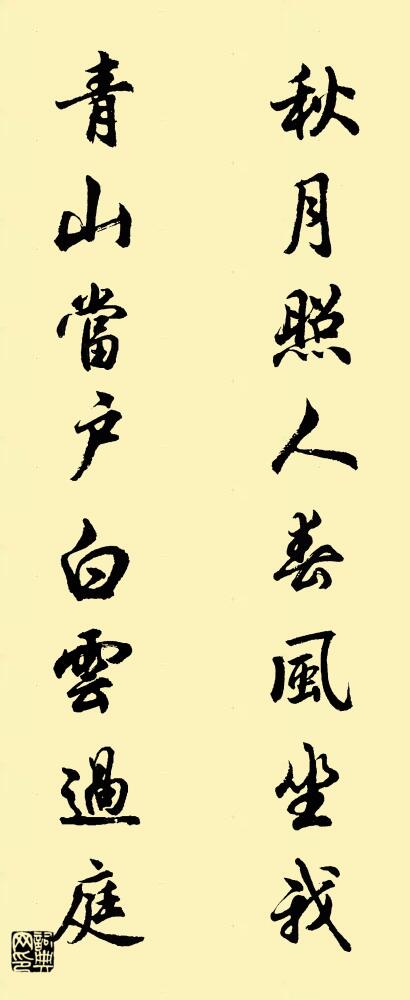 秋月照人春風坐我
青山當户白雲過庭
詞典網印